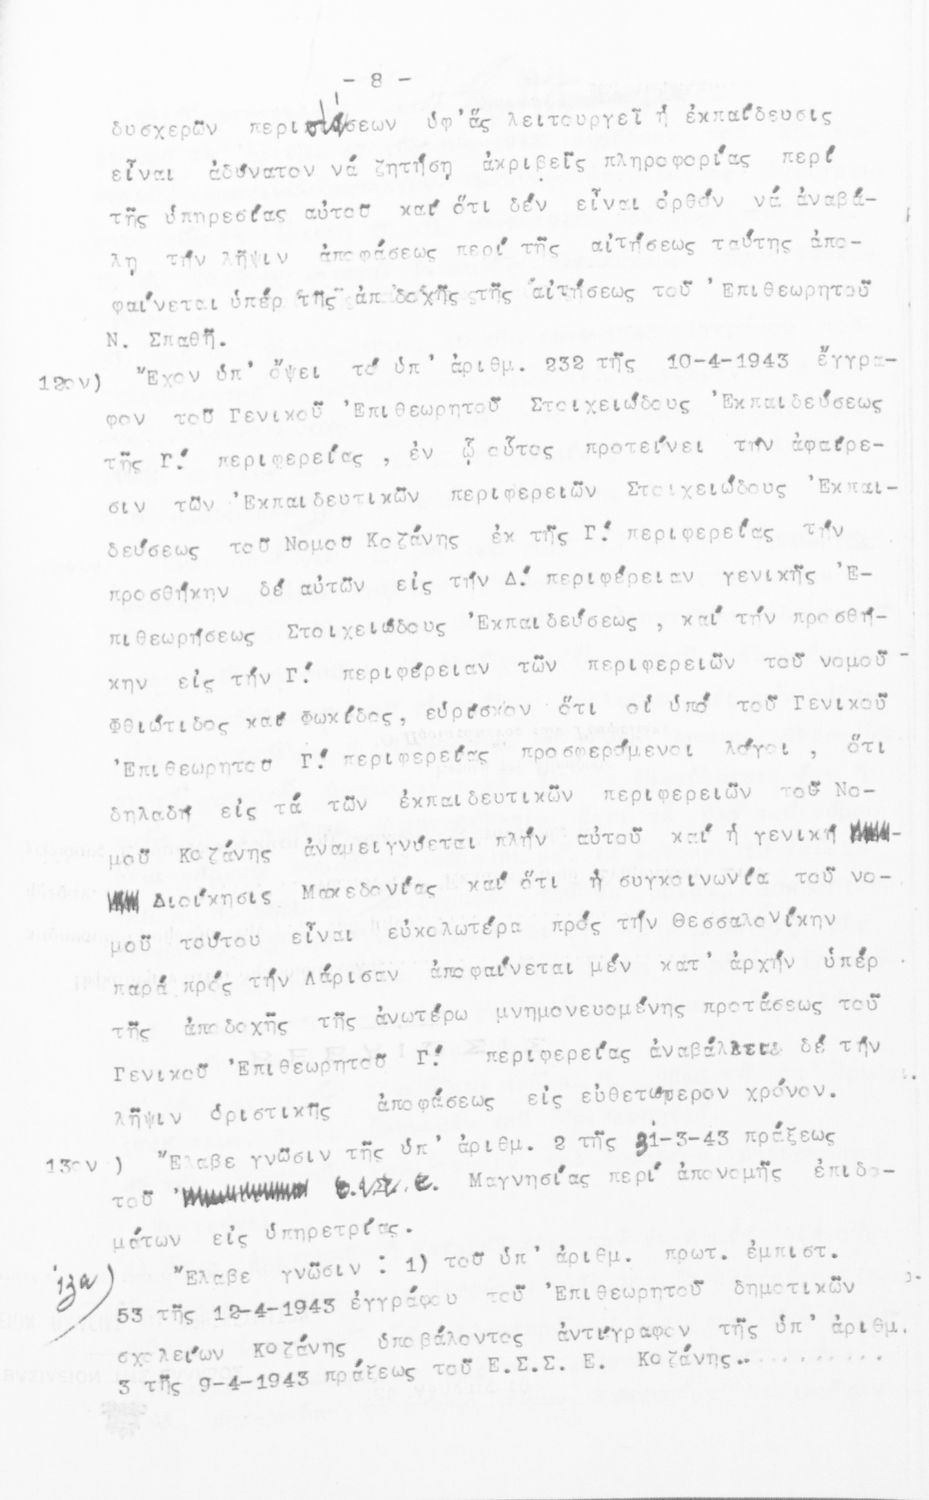 - 8 -
δυσχερῶν περιστάσεων ὑφ'ἅς λειτουργεῖ ἡ ἐκπαίδευσις
εἶναι ἀδύνατον νά ζητήσῃ ἀκριβεῖς πληροφορίας περί
τῆς ὑπηρεσίας αὐτοῦ καί ὅτι δέν εἶναι ὀρθόν νά ἀναβά-
λῃ τήν λῆψιν ἀποφάσεως περί τῆς αἰτήσεως ταύτης ἀπο-
φαίνεται ὑπέρ τῆς ἀπ δοχῆς τῆς αἰτήσεως τοῦ 'Επιθεωρητοῦ
Ν. Σπαθῆ.
12ον) "Εχον ὑπ' ὄψει τό ὑπ' ἀριθμ. 232 τῆς 10-4-1943 ἔγγρα-
φον τοῦ Γενικοῦ 'Επιθεωρητοῦ Στοιχειώδους 'Εκπαιδεύσεως
τῆς Γ! περιφερείας , ἐν ᾧ οὗτος προτείνει τήν ἀφαίρε-
σιν τῶν 'Εκπαιδευτικῶν περιφερειῶν Στοιχειώδους 'Εκπαι-
δεύσεως τοῦ Νομοῦ Κοζάνης ἐκ τῆς Γ! περιφερείας τήν
προσθήκην δέ αὐτῶν εἰς τήν Δ! περιφέρειαν γενικῆς 'Ε-
πιθεωρήσεως Στοιχειώδους 'Εκπαιδεύσεως , καί τήν προσθή-
κην εἰς τήν Γ! περιφέρειαν τῶν περιφερειῶν τοῦ νομοῦ
Φθιώτιδος καί Φωκίδος, εὑρίσκον ὅτι οἱ ὑπό τοῦ Γενικοῦ
'Επιθεωρητοῦ Γ! περιφερείας προσφερόμενοι λόγοι , ὅτι
δηλαδή εἰς τά τῶν ἐκπαιδευτικῶν περιφερειῶν τοῦ Νο-
μοῦ Κοζάνης ἀναμειγνύεται πλήν αὐτοῦ καί ἡ γενική
Διοίκησις Μακεδονίας καί ὅτι ἡ συγκοινωνία τοῦ νο-
μοῦ τούτου εἶναι εὐκολωτέρα πρός τήν Θεσσαλονίκην
παρά πρός τήν Λάρισαν ἀποφαίνεται μέν κατ' ἀρχήν ὑπέρ
τῆς ἀποδοχῆς τῆς ἀνωτέρω μνημονευομένης προτάσεως τοῦ
Γενικοῦ 'Επιθεωρητοῦ Γ! περιφερείας ἀναβάλλει δέ τήν
λῆψιν ὁριστικῆς ἀποφάσεως εἰς εὐθετώτερον χρόνον.
13ον ) "Ελαβε γνῶσιν τῆς ὑπ' ἀριθμ. 2 τῆς 31-3-43 πράξεως
τοῦ Μαγνησίας περί ἀπονομῆς ἐπιδο-
μάτων εἰς ὑπηρετρίας.
"Ελαβε γνῶσιν : 1) τοῦ ὑπ' ἀριθμ. πρωτ. ἐμπιστ.
53 τῆς 12-4-1943 ἐγγράφου τοῦ 'Επιθεωρητοῦ δημοτικῶν
σχολείων Κοζάνης ὑποβάλοντος ἀντίγραφον τῆς ὑπ' ἀριθμ.
3 τῆς 9-4-1943 πράξεως τοῦ Ε.Σ.Σ. Ε. Κοζάνης...........